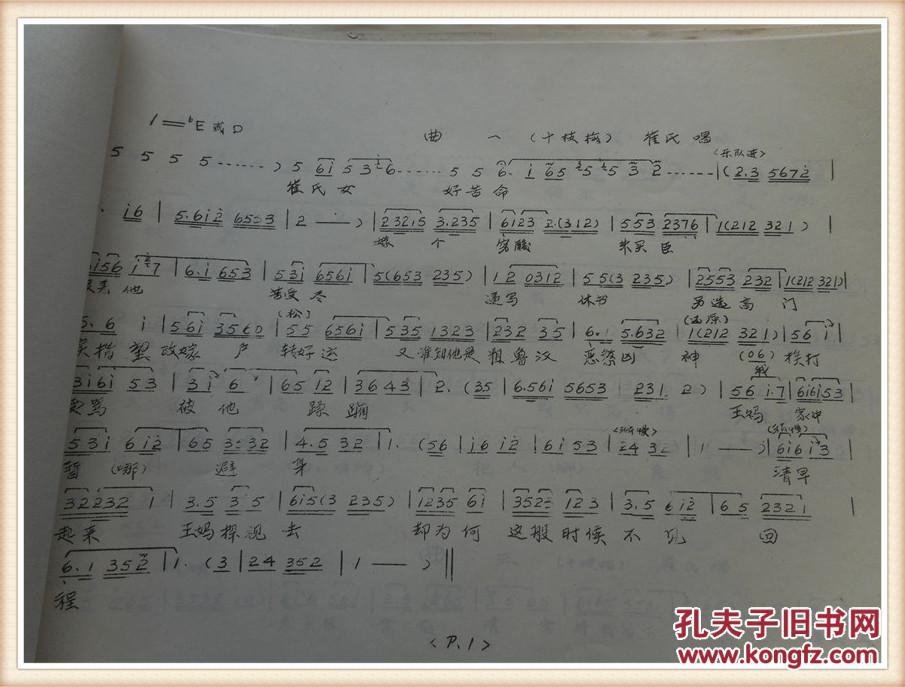 1=ᵇE或D
曲 一 (十枝梅) 崔氏 唱
<乐队进>
5 5 5 5 ……) 5 6i 5 3 6 …… 5 5 6. i 65 5 5 3 2 ……|(2.3 5672|
崔氏女 好苦命
i6|5.6i2 6523|2 — )|2321.5 3.235|6123 2(312)|553 2376|1(212 321)|
嫁 个 穷酸 朱买臣
i56 i 7|6.i 653|53i 656i|5(653 235)|12 0312|55(3 235)|2553 232|1(212 321)|
他 受尽 逼写 休书 另选高门
(松) (还原)
5.6 i|56i 3560|55 656i|535 1323|232 35|6. 5.632|1(212 321)|56 i|
指望改嫁 户 转好运 又谁知他是粗鲁汉 恶煞凶 神 (06) 挨打
我
3i6i 53|3i 6|65 12|36 43|2. (35|6.56i 5653|231 2)|56 i.7|6i6i53|
骂 被他 蹂蹦 王妈 家中
53i 6i2|65 3232|4.5 32|1. (56|i6 i2|6i 53|24 32|1 — )|6i6i3|
暂(哪) 避 清早
32232 1|3.5 3 5|6i5(3 235)|1235 6i|3522 123|3.5 6i2|65 2321|
起来 王妈探视去 却为何 这般时候不见 回
6.1 352|1. (3|24 352|1 — )‖
程
<P.1>
孔夫子旧书网
www.kongfz.com